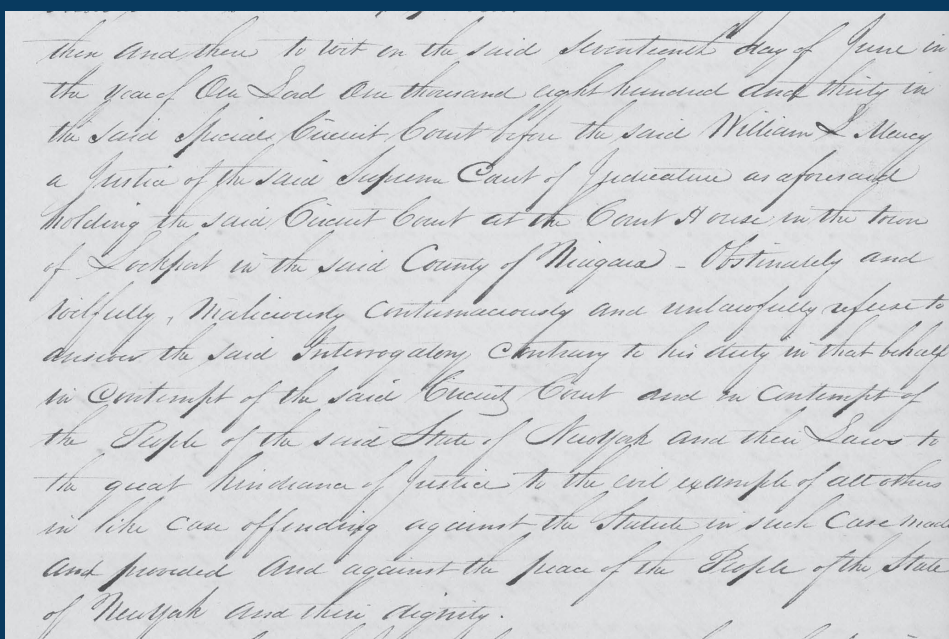 then and there to wit on the said seventeenth day of June in
the year of Our Lord One thousand eight hundred and thirty in
the said Special Circuit Court before the said William L Marcy
a Justice of the said Supreme Court of Judicature as aforesaid
holding the said Circuit Court at the Court House in the town
of Lockport in the said County of Niagara - Obstinately and
wilfully, Maliciously Contumaciously and unlawfully refuse to
answer the said Interrogatory Contrary to his duty in that behalf
in Contempt of the said Circuit Court and in Contempt of
the People of the said State of New York and their Laws to
the great hindrance of Justice to the evil example of all others
in like case offending against the Statute in such Case made
and provided and against the peace of the People of the State
of New York and their dignity.